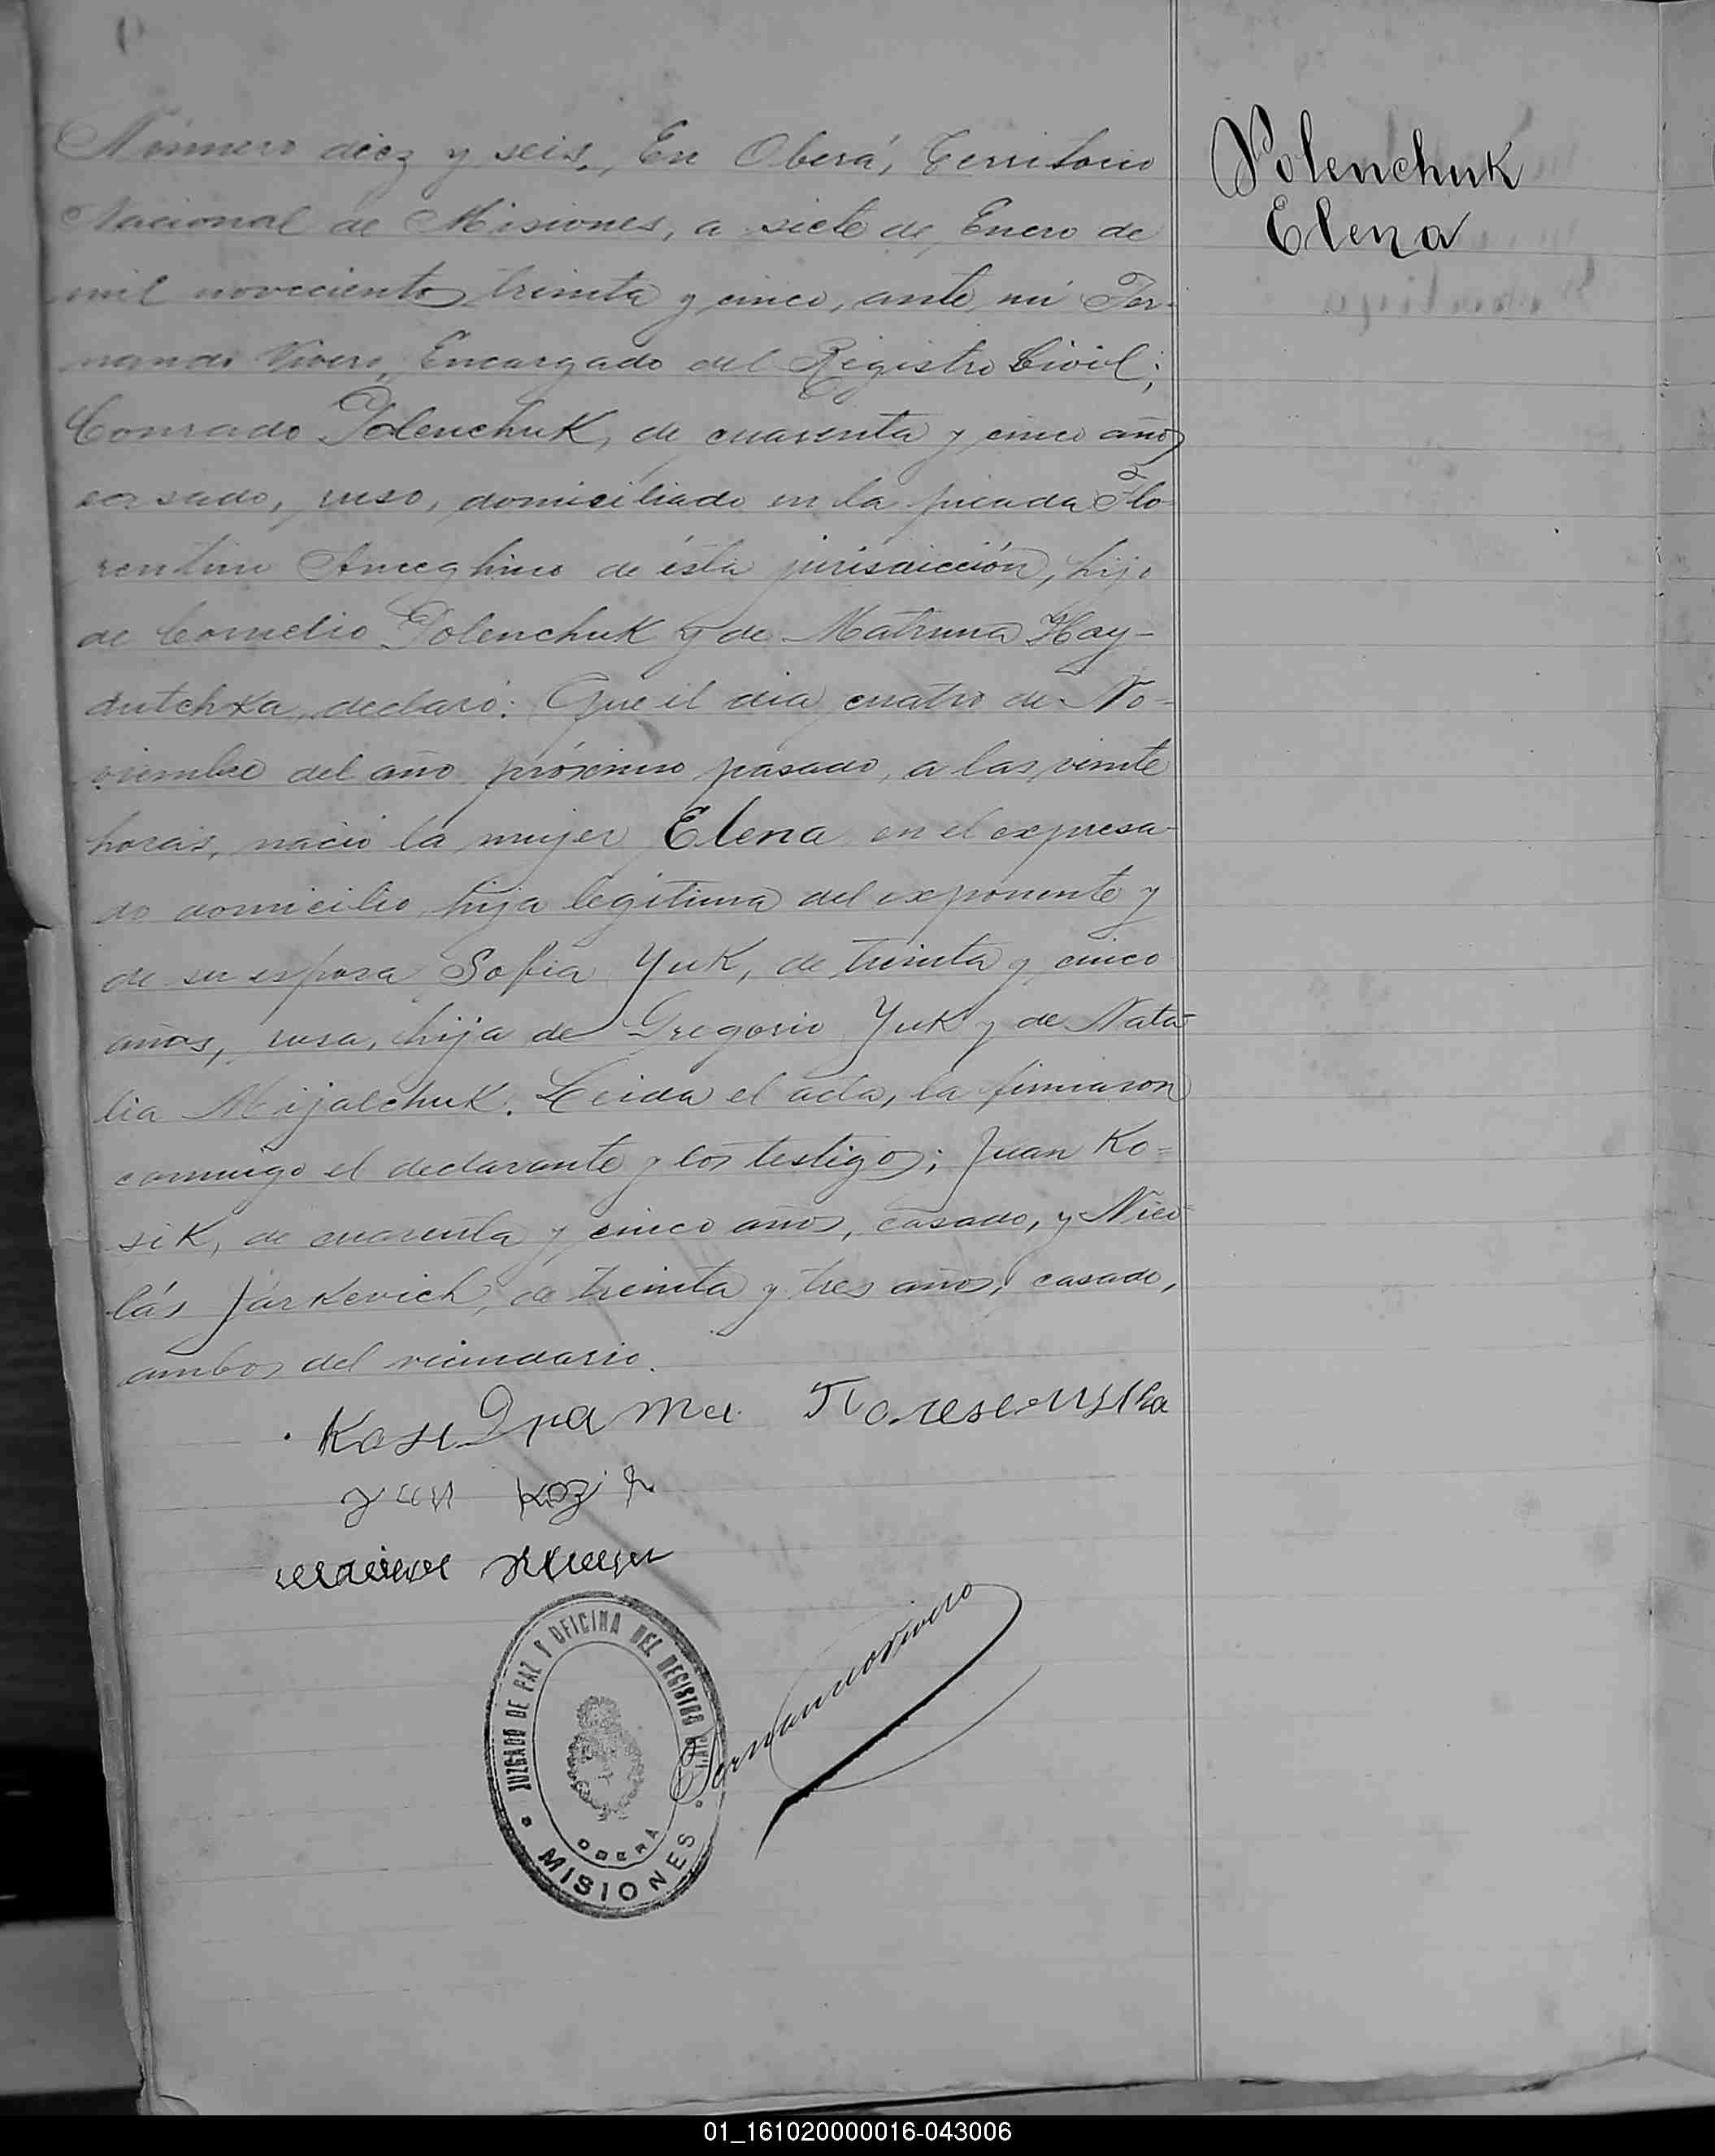 Número diez y seis, En Oberá, Territorio
Polenchuk
Nacional de Misiones, a siete de Enero de
Elena
mil novecientos treinta y cinco, ante mi Fer-
nando Vivero, Encargado del Registro Civil;
Conrado Polenchuk, de cuarenta y cinco años
casado, ruso, domiciliado en la picada Flo-
rentino Ameghino de ésta jurisdicción, hijo
de Cornelio Polenchuk y de Matruna Hay-
dutchka, declaró: Que el dia cuatro de No-
viembre del año próximo pasado, a las veinte
horas, nació la mujer Elena en el expresa-
do domicilio hija legítima del exponente y
de su esposa Sofia Yuk, de treinta y cinco
años, rusa, hija de Gregorio Yuk y de Nata-
lia Mijalchuk. Leida el acta, la firmaron
conmigo el declarante y los testigos; Juan Ko-
sik, de cuarenta y cinco años, casado, y Nico-
lás Jarkevich, de treinta y tres años, casado,
ambos del vecindario.
JUZGADO DE PAZ Y OFICINA DEL REGISTRO CIVIL
Fernando Vivero
OBERÁ
MISIONES
01_161020000016-043006